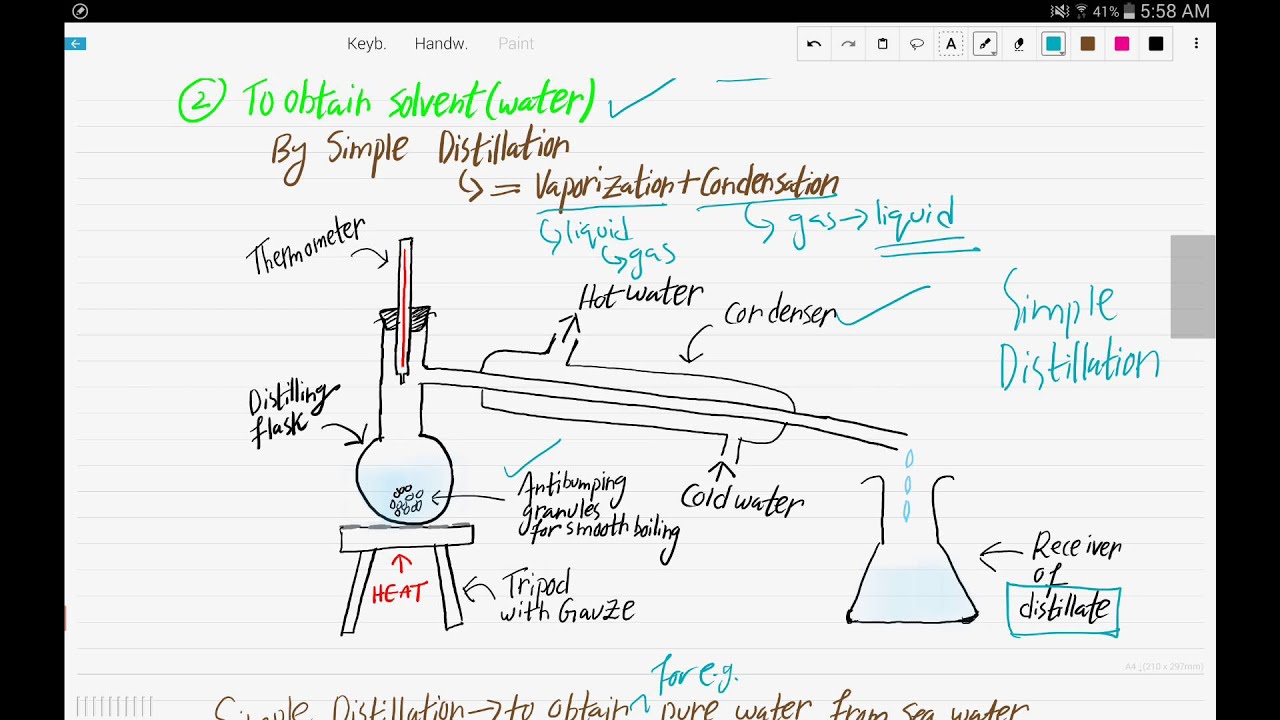 41% 5:58 AM
Keyb. Handw. Paint
A
② To obtain solvent (water)
By Simple Distillation
= Vaporization + Condensation
liquid
gas
gas → liquid
Thermometer
Hot water
Condenser
Simple
Distillation
Distilling
flask
Antibumping
granules
for smooth boiling
Cold water
HEAT
Tripod
with Gauze
Receiver
of
distillate
A4 (210 x 297mm)
for e.g.
Simple Distillation → to obtain pure water from sea water